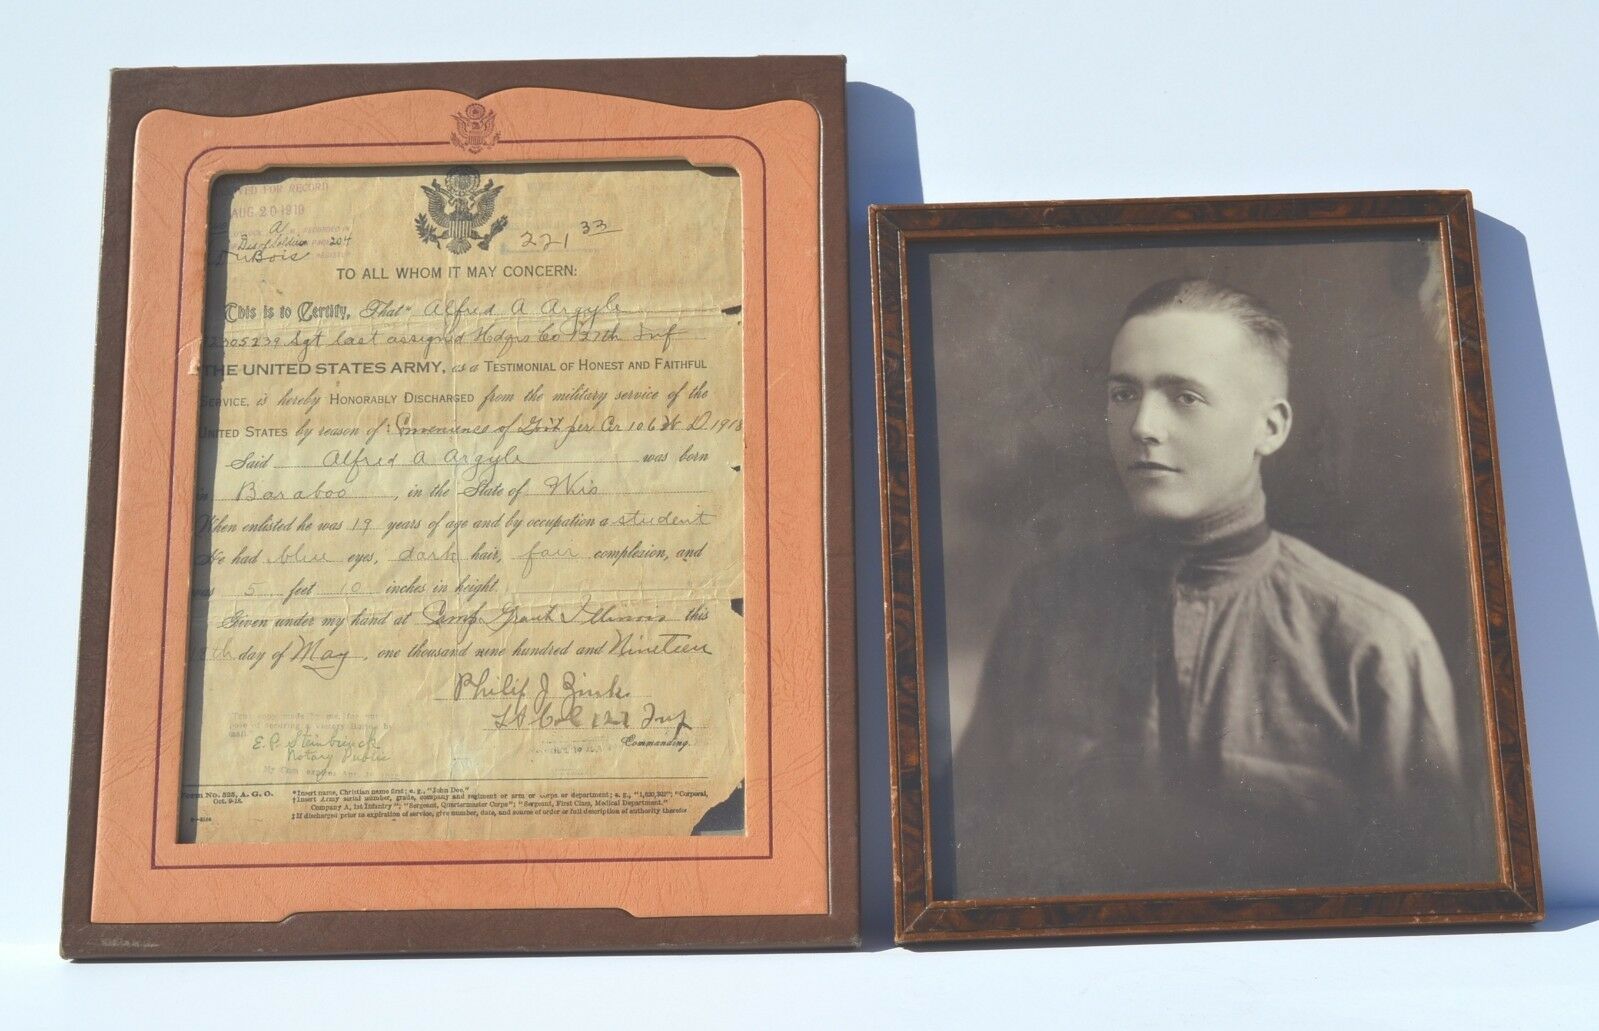 FOR RECORD
AUG 20 1919
204
DuBois
221 33
TO ALL WHOM IT MAY CONCERN:
This is to Certify, That* Alfred A Argyle
2305239 Sgt last assigned Hdqrs Co 127th Inf
THE UNITED STATES ARMY, as a TESTIMONIAL OF HONEST AND FAITHFUL
SERVICE, is hereby HONORABLY DISCHARGED from the military service of the
UNITED STATES by reason of: Convenience of Gov't per Cir 106 W D 1918
Said Alfred A Argyle was born
in Baraboo, in the State of Wis
When enlisted he was 19 years of age and by occupation a student
He had blue eyes, dark hair, fair complexion, and
was 5 feet 10 inches in height.
Given under my hand at Camp Grant Illinois this
day of May, one thousand nine hundred and Nineteen
Philip J Zink
Lt Col 127 Inf
Commanding.
E. P. Steinbrinck
Notary Public
Form No. 525, A. G. O.
Oct. 9-18.
*Insert name, Christian name first; e. g., "John Doe."
†Insert Army serial number, grade, company and regiment or arm or corps or department; e. g., "1,620,302"; "Corporal,
Company A, 1st Infantry"; "Sergeant, Quartermaster Corps"; "Sergeant, First Class, Medical Department."
‡If discharged prior to expiration of service, give number, date, and source of order or full description of authority therefor.